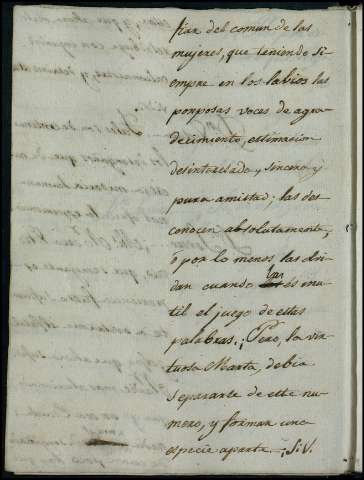 fiar del comun de las
mujeres, que teniendo si-
empre en los labios las
pomposas voces de agra-
decimiento, estimacion
desinteresado y sincero, y
pura amistad; las des
conocen absolutamente,
ó por lo menos, las olvi
dan cuando les és inu
til el juego de estas
palabras. ¡Pero, la vir
tuosa Marta, debia
separarse de este nu
mero, y formar una
especie aparte! Si V.